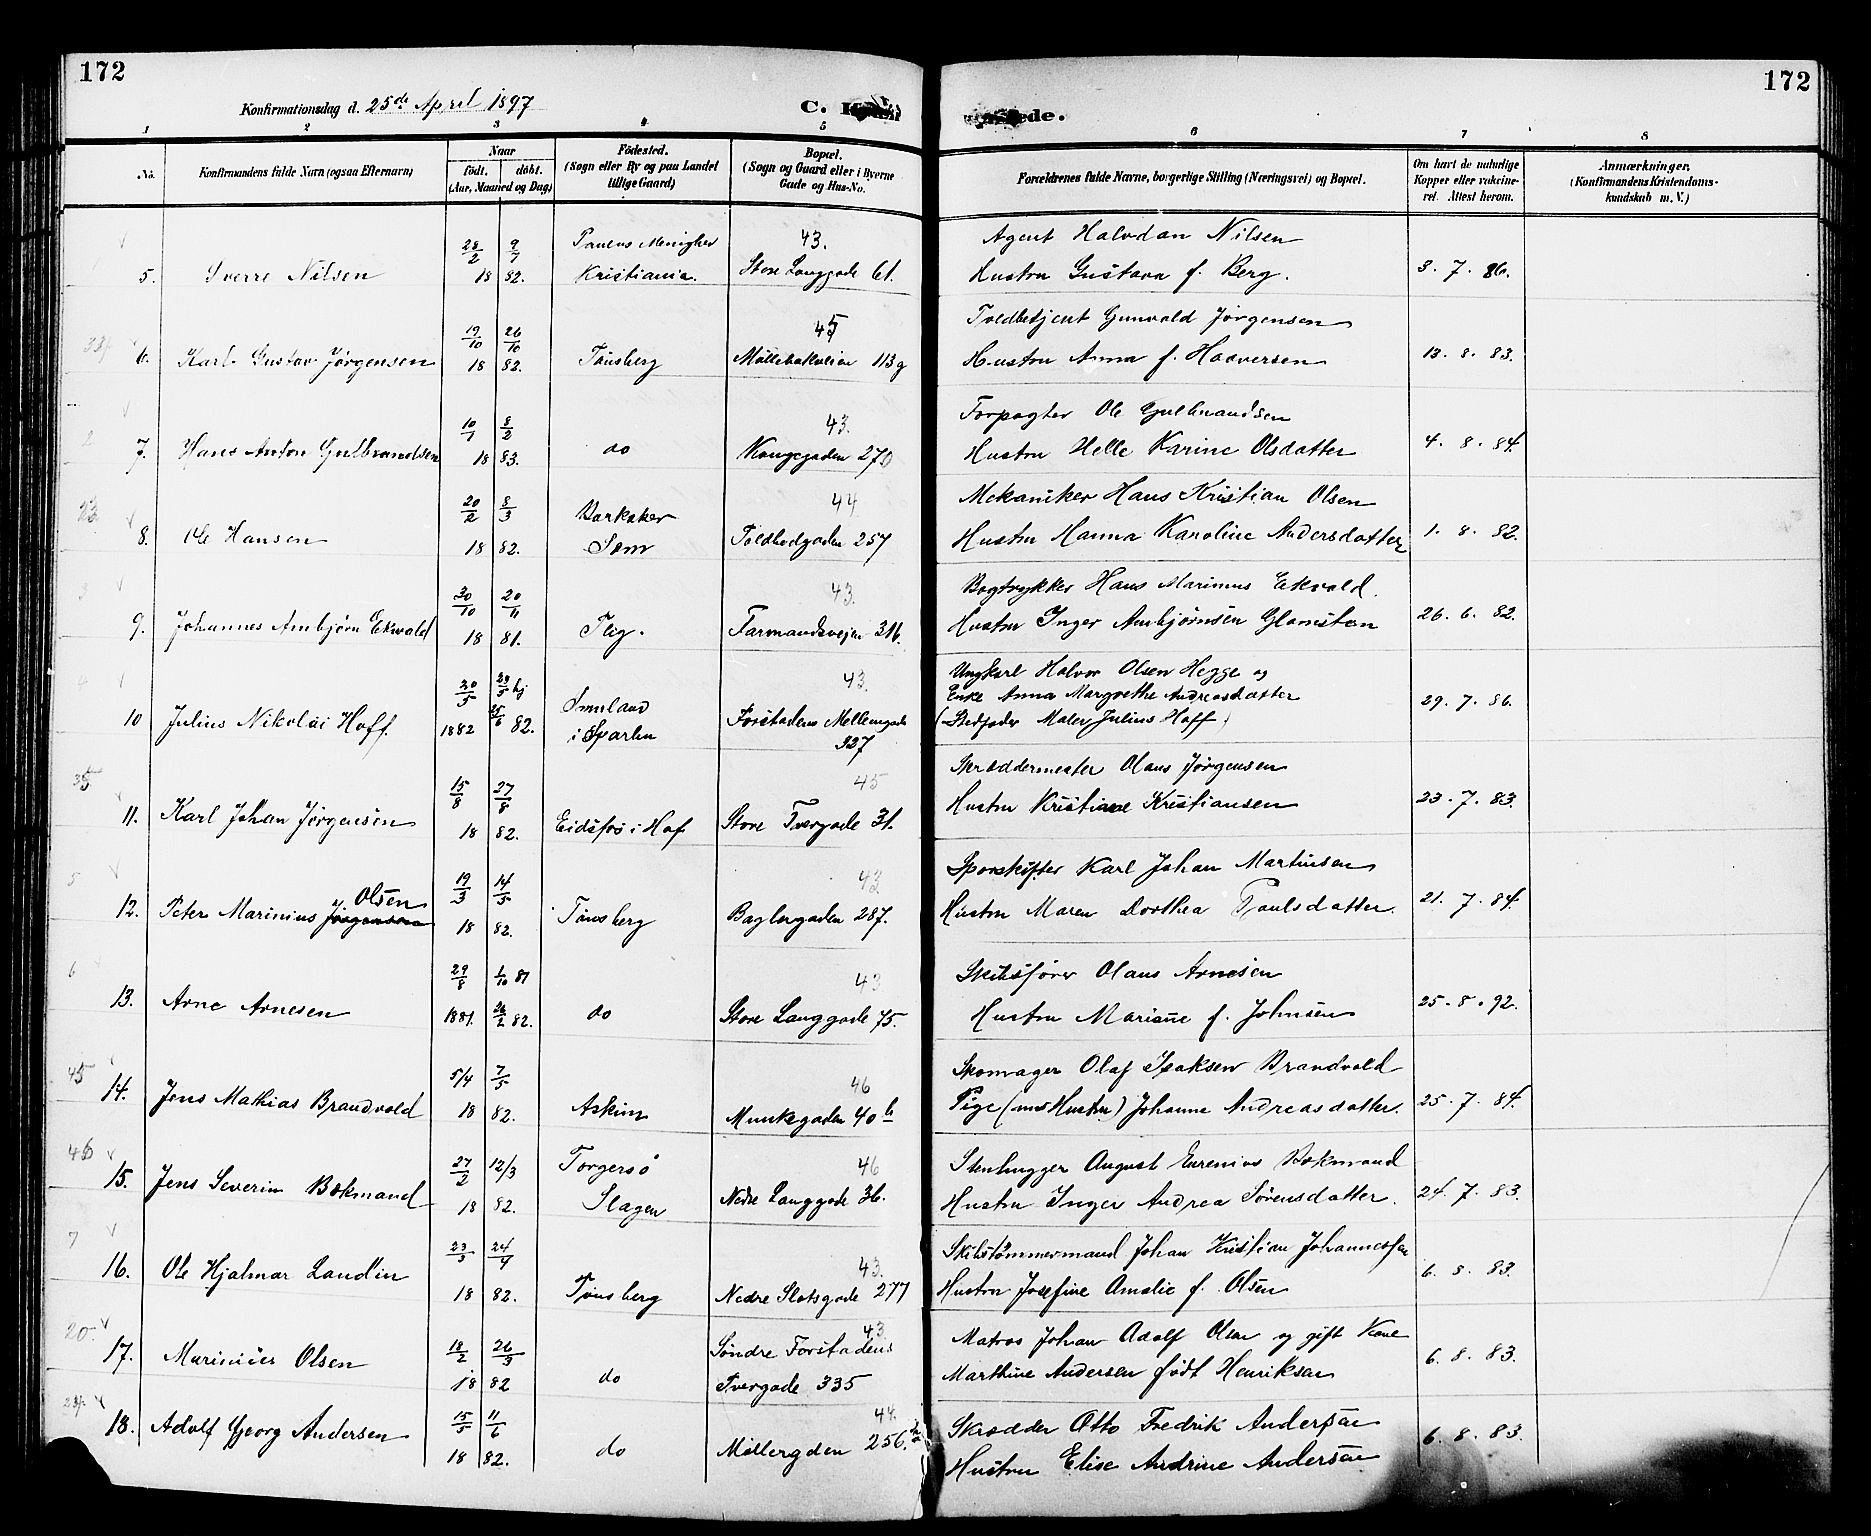 172
172
Konfirmationsdag d. 25de April 1897
C.
1 2 3 4 5 6 7 8
No.
Konfirmandens fulde Navn (ogsaa Efternavn)
Naar
født. døbt.
(Aar, Maaned og Dag)
Fødested.
(Sogn eller By og paa Landet
tillige Gaard)
Bopæl.
(Sogn og Gaard eller i Byerne
Gade og Hus-No.
Forældrenes fulde Navne, borgerlige Stilling (Næringsvei) og Bopæl.
Om havt de naturlige
Kopper eller vakcine-
ret. Attest herom.
Anmærkninger.
(Konfirmandens Kristendoms-
kundskab m. V.)
28/2 9/7 Paulus Menighed 43. Agent Halvdan Nilsen
5. Sverre Nilsen 18 82. Kristiania. Store Langgade 61. Hustru Gustava f. Berg. 3. 7. 86.
19/10 26/10 45 Toldbetjent Gunvald Jørgensen
6. Karl Gustav Jørgensen 18 82. Tønsberg Møllebakveien 113g Hustru Anna f. Haaversen 13. 8. 83.
10/1 8/2 43. Forpagter Ole Gulbrandsen
7. Hans Anton Gulbrandsen 18 83. do Kongegaden 270 Hustru Helle Karine Olsdatter 4. 8. 84.
23 20/2 8/3 Barkaker 44 Mekaniker Hans Kristian Olsen
8. Ole Hansen 18 82. Sem Toldbodgaden 257 Hustru Hanna Karoline Andersdatter 1. 8. 82.
3 20/10 20/11 43. Bogtrykker Hans Marinius Ekvold.
9. Johannes Arnbjørn Ekvold 18 81. Farmandsveien 316. Hustru Inger Arnbjørnsen 26. 6. 82.
4 20/5 43. Ungkarl Halvor Olsen Hegge og
Enke Anna Margrethe Andreasdatter
10 Julius Nikolai Hoff. 1882 25/6 82. Forstadens Mellemgade (Stedfader Maler Julius Hoff) 29. 7. 86.
327
35 15/8 27/8 45 Skræddermester Olaus Jørgensen
11. Karl Johan Jørgensen 18 82. Eidsfos i Hof Store Tvergade 31. Hustru Kristiane Kristiansen 23. 7. 83.
5 Olsen 19/3 14/5 43 Sporskifter Karl Johan Martinsen
12. Peter Marinius Jørgensen 18 82. Tønsberg Baglergaden 287. Hustru Maren Dorthea Paulsdatter. 21. 7. 84.
6 29/8 1/10 81 43 Skibsfører Olaus Arnesen
13. Arne Arnesen 1881. 26/2 82. do Store Langgade 75. Hustru Mariane f. Johnsen 25. 8. 92.
45 5/4 7/5 46 Skomager Olaf Isaksen Brandvold
14. Jens Mathias Brandvold 18 82. Askim Munkegaden 40 b Pige (nu Hustru) Johanne Andreasdatter. 25. 7. 84.
46 27/2 12/3 Torgersø 46 Stenhugger August Eurenius Bokmand
15. Jens Severin Bokmand 18 82. Slagen Nedre Langgade 36. Hustru Inger Andrea Sørensdatter. 24. 7. 83.
7 23/3 24/4 43. Skibstømmermand Johan Kristian Johannessen
16. Ole Hjalmar Landin 18 82. Tønsberg Nedre Slotsgade 277 Hustru Josefine Amalie f. Olsen 6. 8. 83.
20. 43.
18/2 26/3 Søndre Forstadens Matros Johan Adolf Olsen og gift Kone
17. Marinius Olsen 18 82 do Tvergade 335 Marthine Andersen født Henriksen 6. 8. 83.
15/5 11/6 44. Skrædder Otto Fredrik Andersen
18. Adolf Georg Andersen 18 82. do Møllergden 256. Hustru Elise Andrine Andersen 6. 8. 83.